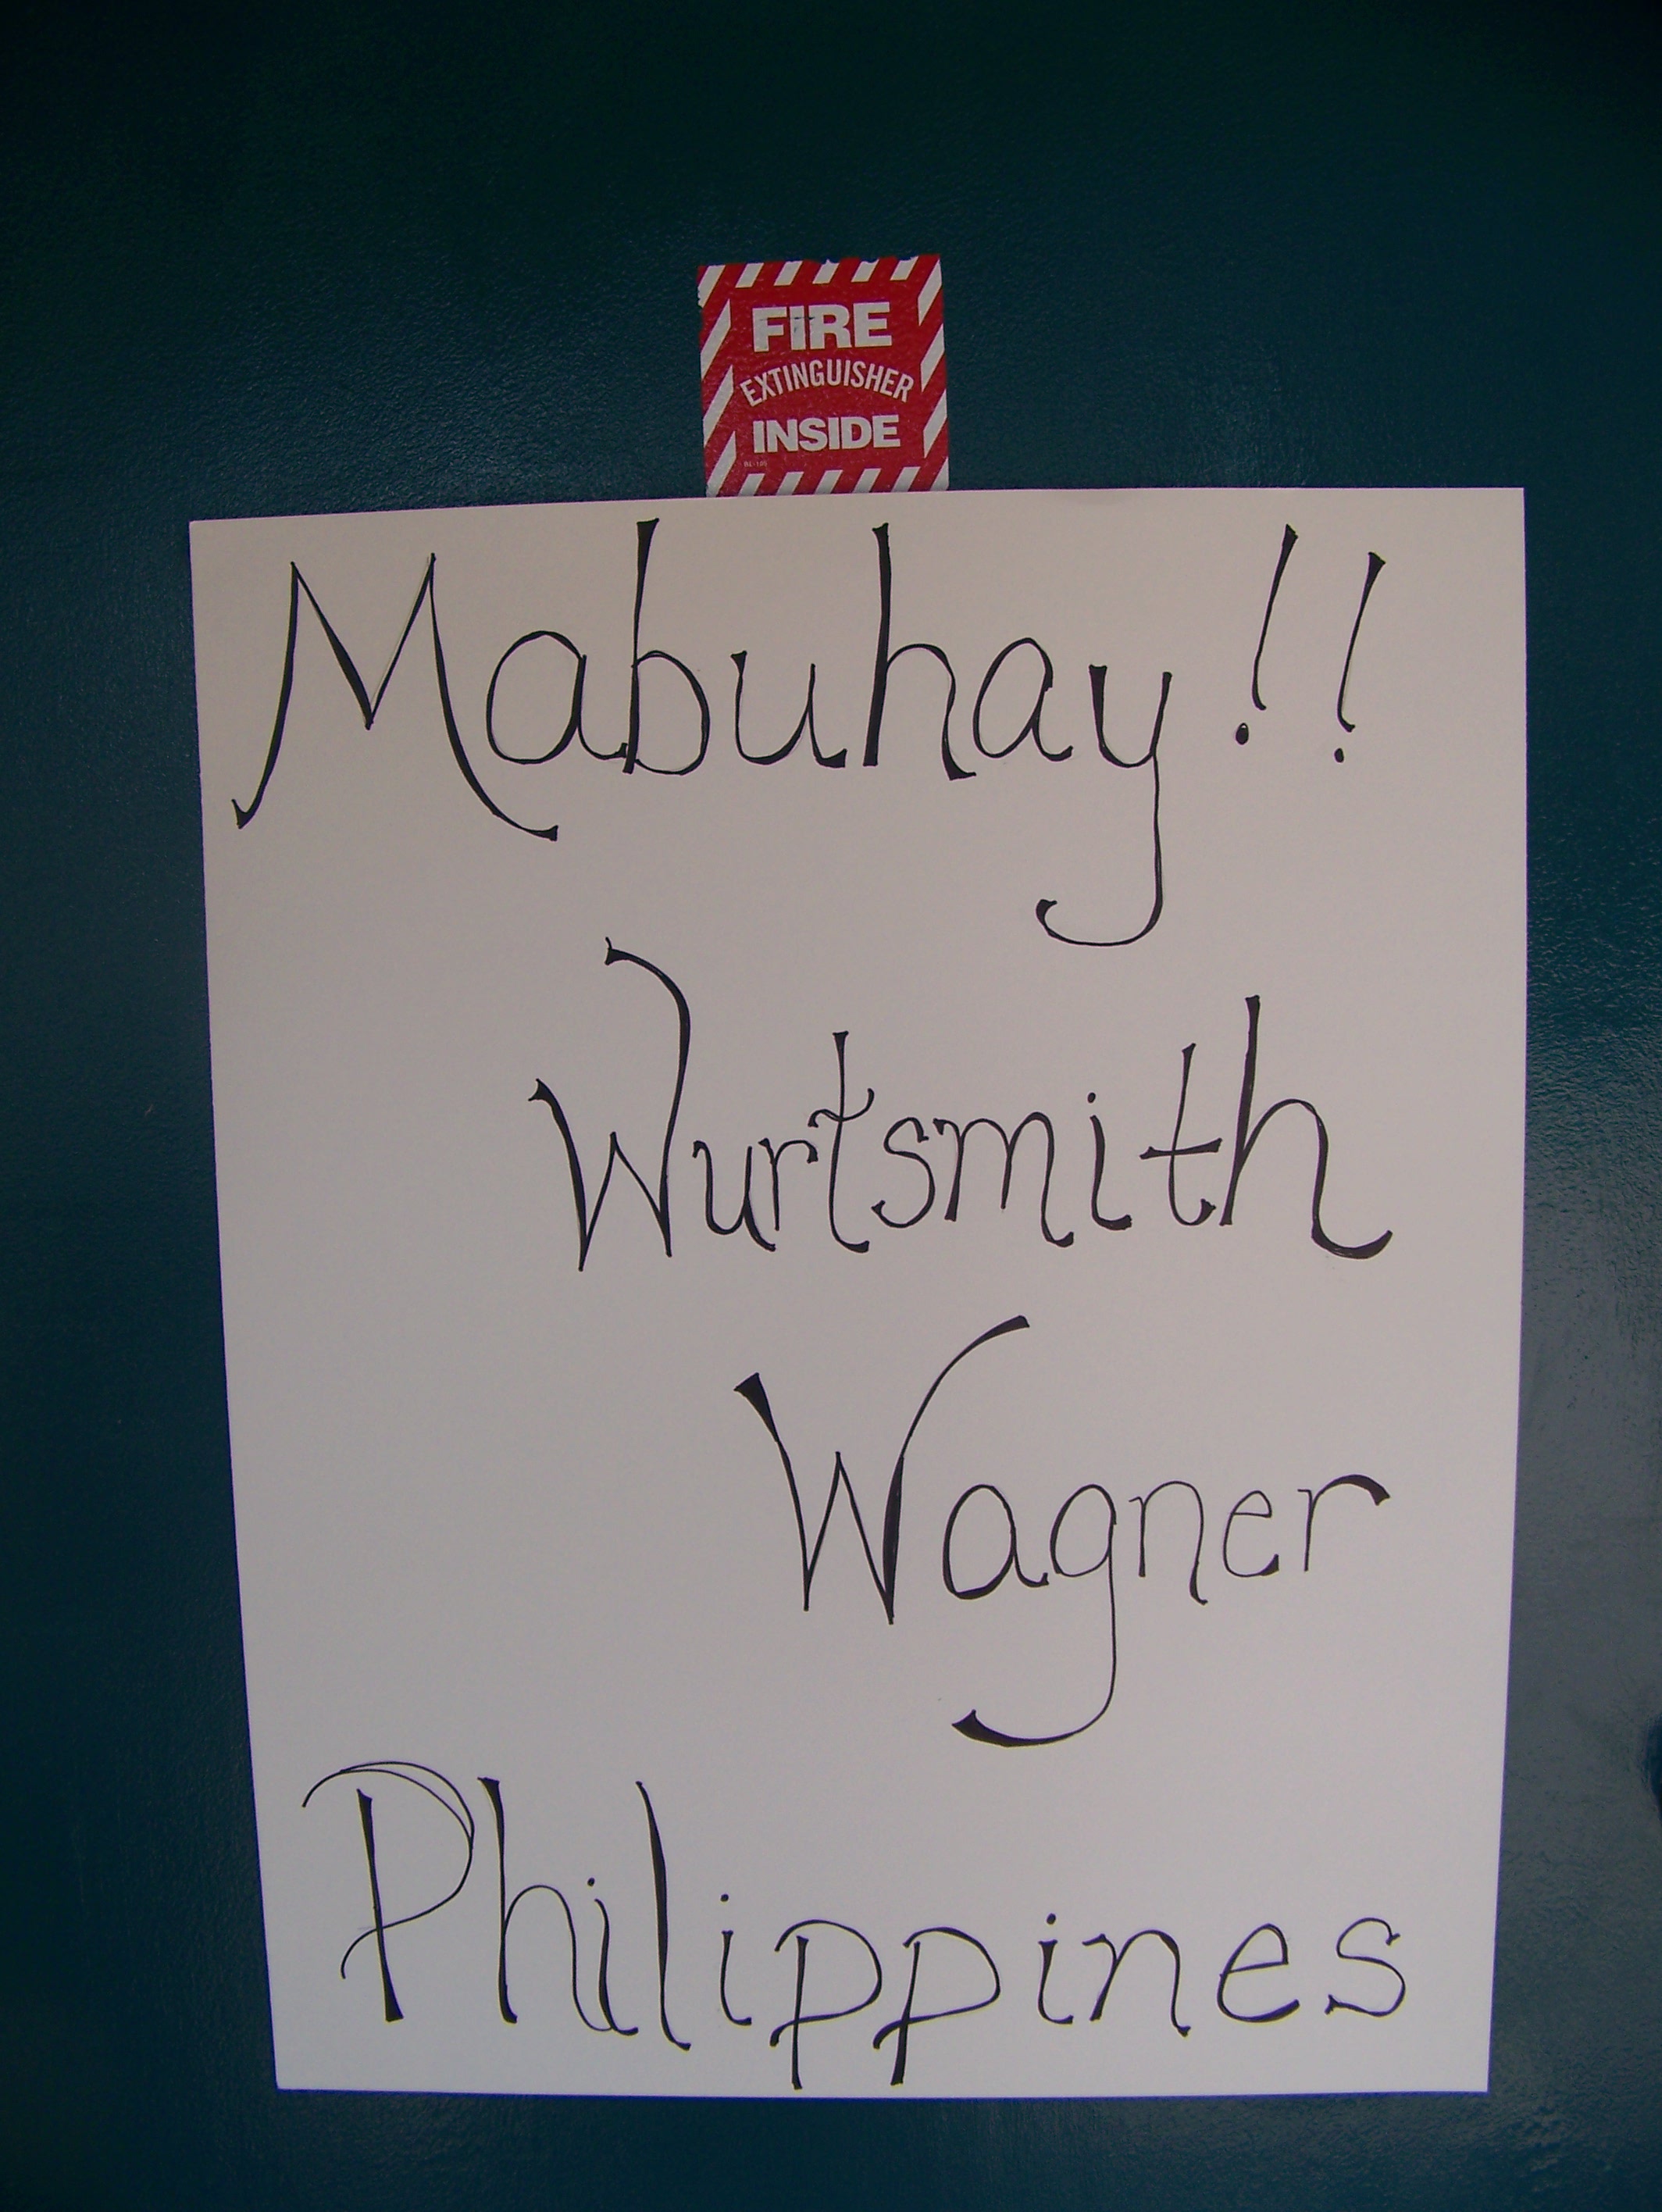 FIRE
EXTINGUISHER
INSIDE
Mabuhay!!
Wurtsmith
Wagner
Philippines